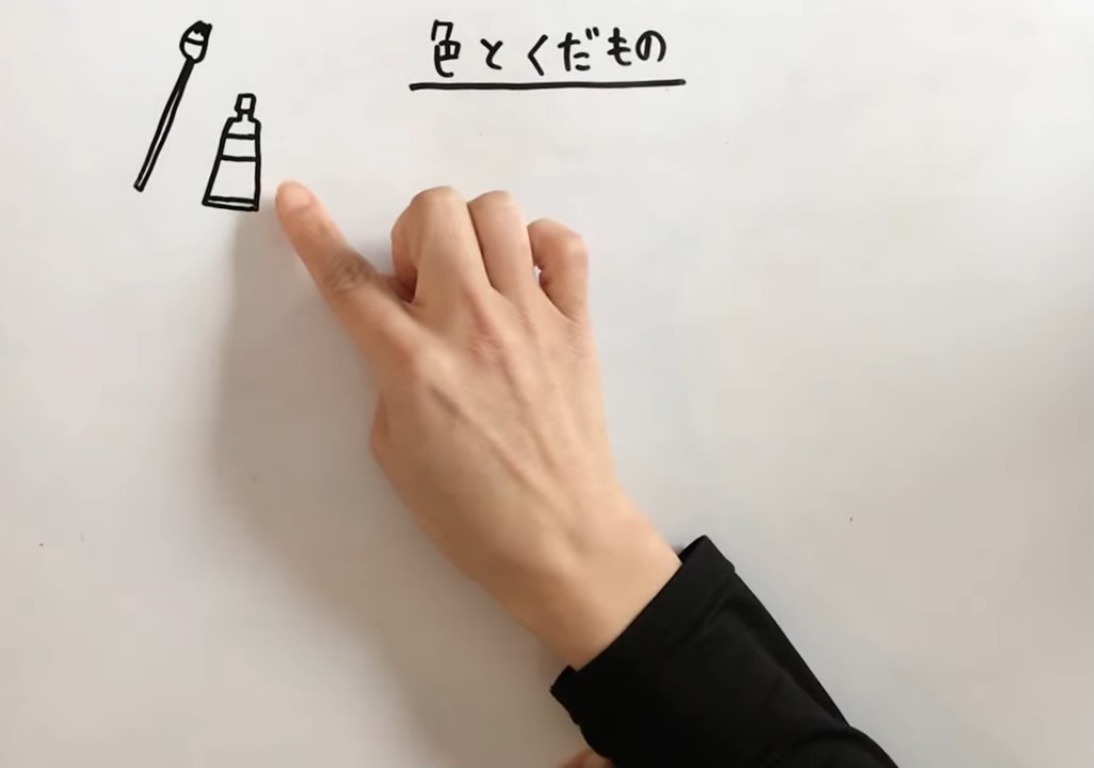 色とくだもの